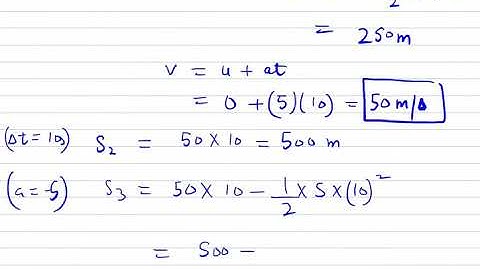 2
= 250m
v = u + at
= 0 + (5)(10) = 50 m/s
(Δt = 10s) S₂ = 50 × 10 = 500 m
(a = -5) S₃ = 50 × 10 - 1/2 × 5 × (10)²
= 500 -